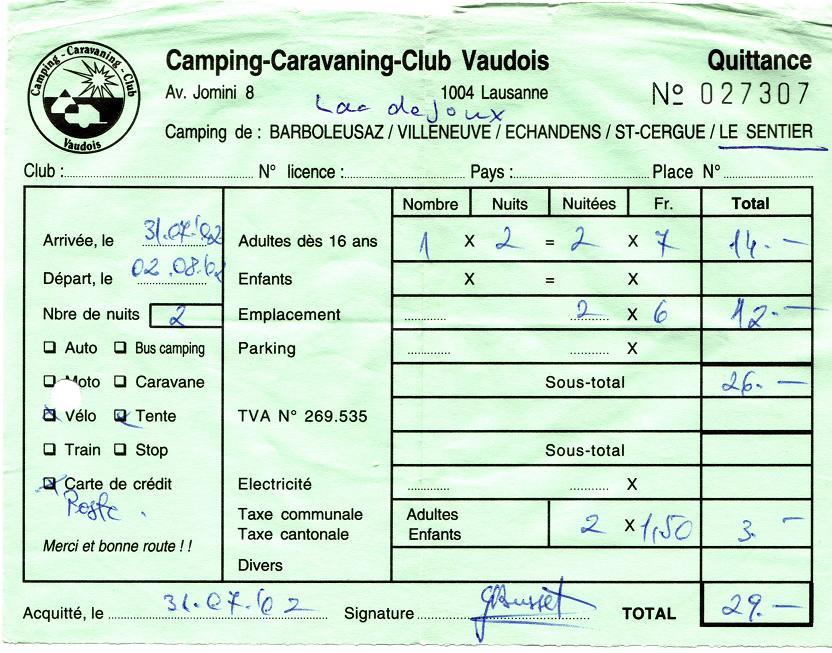 Camping - Caravaning - Club
Vaudois
Camping-Caravaning-Club Vaudois Quittance
Av. Jomini 8 1004 Lausanne Nº 027307
Lac de Joux
Camping de : BARBOLEUSAZ / VILLENEUVE / ECHANDENS / ST-CERGUE / LE SENTIER
Club : N° licence : Pays : Place N°
Nombre Nuits Nuitées Fr. Total
Arrivée, le 31.07.02 Adultes dès 16 ans 1 X 2 = 2 X 7 14.—
Départ, le 02.08.02 Enfants X = X
Nbre de nuits 2 Emplacement 2 X 6 12.—
Auto Bus camping Parking X
Moto Caravane Sous-total 26.—
Vélo Tente TVA N° 269.535
Train Stop Sous-total
Carte de crédit Electricité X
Poste.
Taxe communale Adultes
Taxe cantonale Enfants 2 X 1,50 3.—
Merci et bonne route ! !
Divers
Acquitté, le 31.07.02 Signature TOTAL 29.—